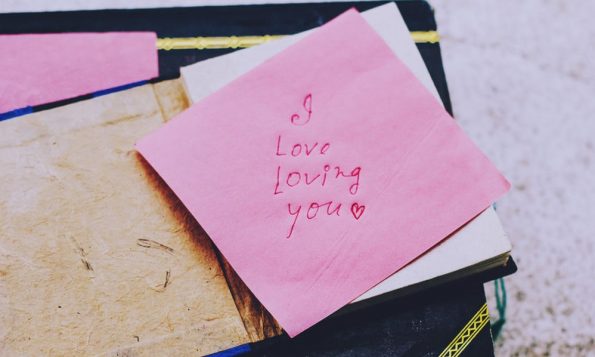 I
Love
Loving
you♥